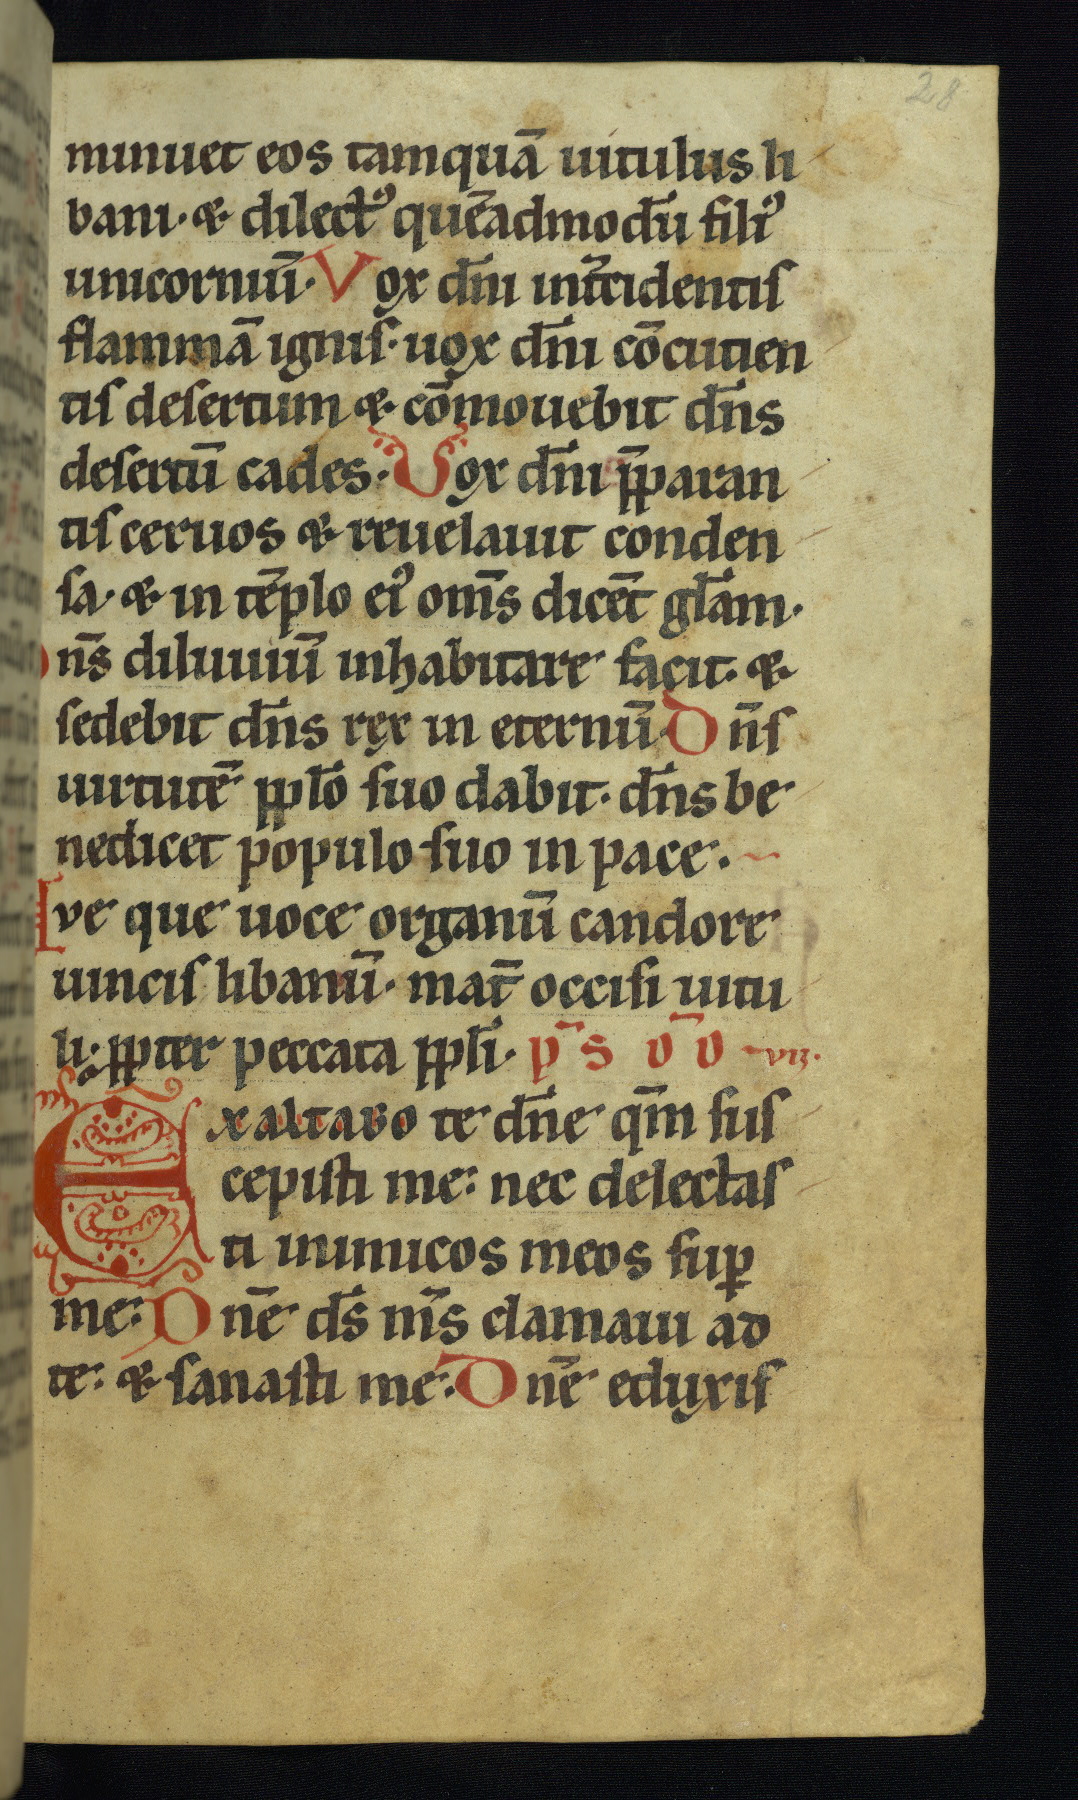 28
minuet eos tamquā uitulus li
bani· & dilectꝰ quēadmodū filiꝰ
unicorniū· Vox dn̄i int̄cidentis
flammā ignis· uox dn̄i cōcutien
tis desertum & cōmouebit dn̄s
desertū cades· Vox dn̄i p̄paran
tis ceruos & reuelauit conden
sa· & in tēplo eiꝰ om̄s dicēt gl̄am·
Dn̄s diluuiū inhabitare facit· &
sedebit dn̄s rex in eternū Dn̄s
uirtutē ppl̄o suo dabit· dn̄s be
nedicet populo suo in pace·
Eve que uoce organū candore
uincis libanū· mat̄ occisi uitu
li· ꝓpter peccata ppl̄i· p̄s
Exaltabo te dn̄e qm̄ sus
cepisti me: nec delectas
ti inimicos meos suꝑ
me: Dn̄e ds̄ ms̄ clamaui ad
te: & sanasti me· Dn̄e eduxis